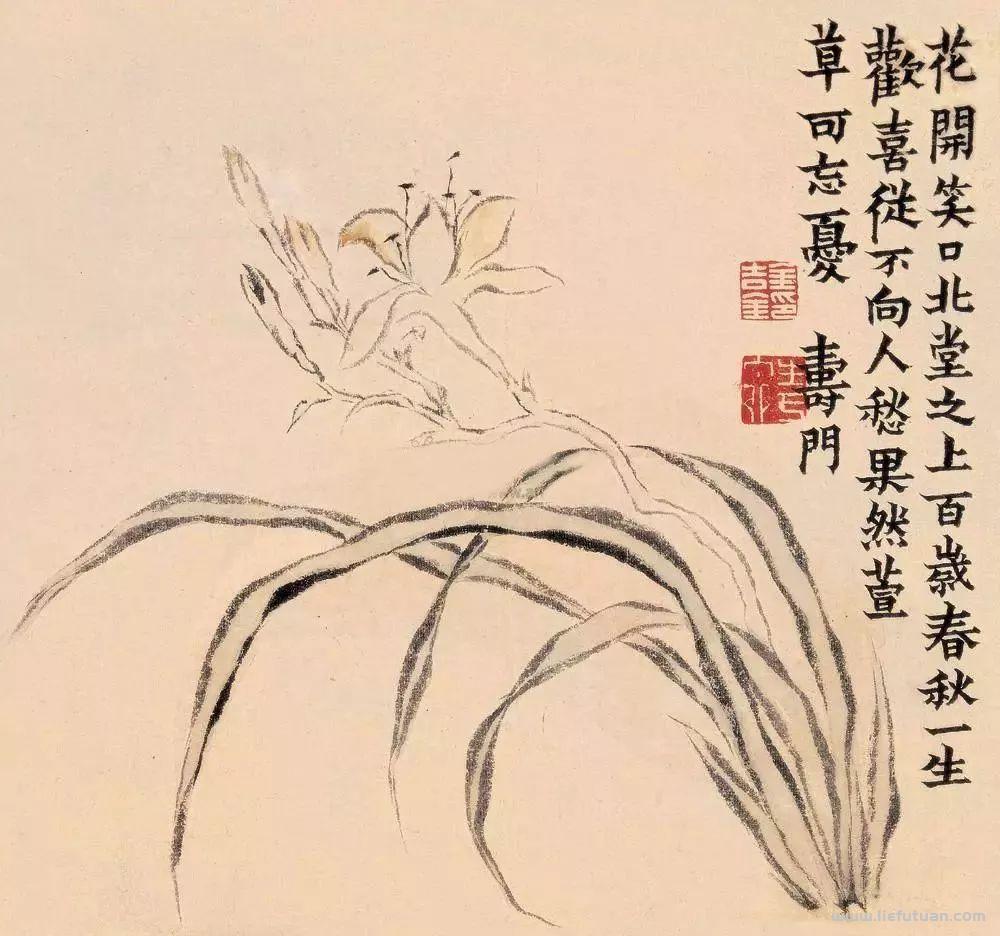 花開笑口北堂之上百歲春秋一生
歡喜從不向人愁果然萱
草可忘憂
壽門
金吉金印
www.liefutuan.com